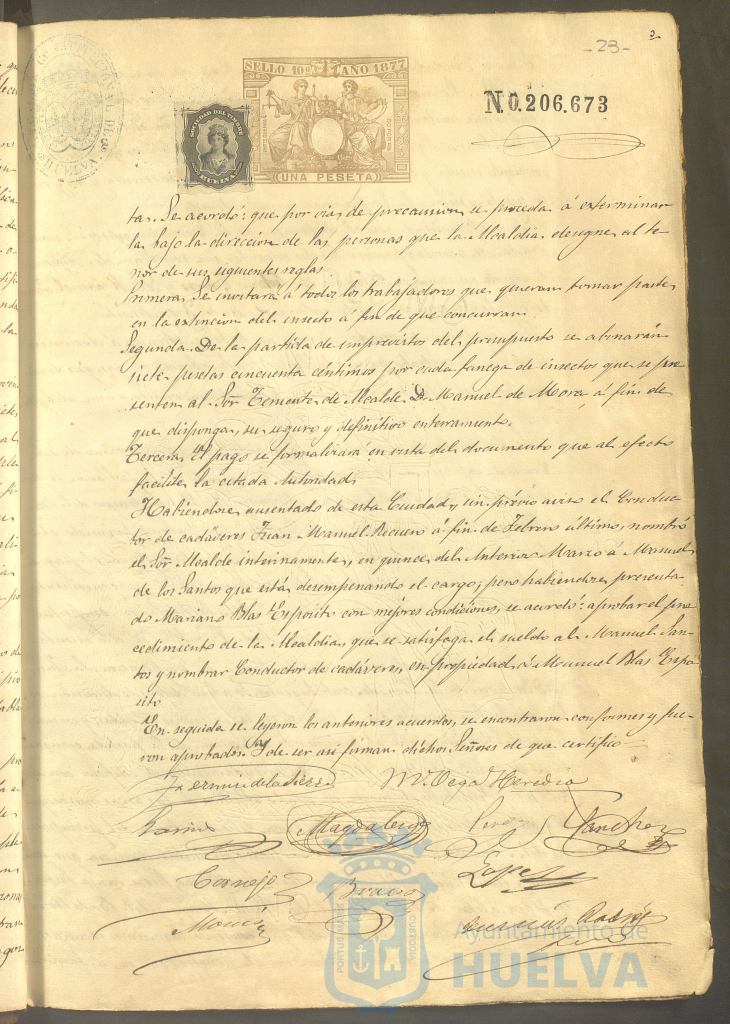 -23-
SELLO 10º AÑO 1877
UNA PESETA
SOCIEDAD DEL TIMBRE
HUELVA
N.0.206.673
ta. Se acordó: que por via de precausion se proceda á exterminar
la bajo la direccion de las personas que la Alcaldia designe al te
nor de sus siguientes reglas.
Primera. Se invitará á todos los trabajadores que quieran tomar parte
en la extincion del insecto á fin de que concurran.
Segunda. De la partida de imprevistos del presupuesto se abonarán
siete pesetas cincuenta céntimos por cada fanega de insectos que se pre
senten al Sor Teniente de Alcalde D. Manuel de Mora á fin de
que disponga su seguro y definitivo enterramiento.
Tercera. El pago se formalizará en vista del documento que al efecto
facilite la citada Autoridad.
Habiendose ausentado de esta Ciudad, sin prévio aviso el Conduc
tor de cadáveres Juan Manuel Recuero á fin de Febrero último, nombró
el Sor Alcalde interinamente, en quince del Anterior Marzo á Manuel
de los Santos que está desempeñando el cargo; pero habiendose presenta
do Mariano Blas Espósito con mejores condiciones, se acordó: aprobar el pro
cedimiento de la Alcaldia, que se satisfaga el sueldo al Manuel San
tos y nombrar Conductor de cadáveres en propiedad á Manuel Blas Espó
sito
En seguida se leyeron los anteriores acuerdos, se encontraron conformes y fue
ron aprobados. Y de ser asi firman dichos Señores de que certifico
Fermin de la Sierra M. Vega Heredia
Magdaleno Sanchez
Cornejo Bravo Lopez
Ayuntamiento de
HUELVA
PORTUS MARIS ET TERRAE CUSTODIA